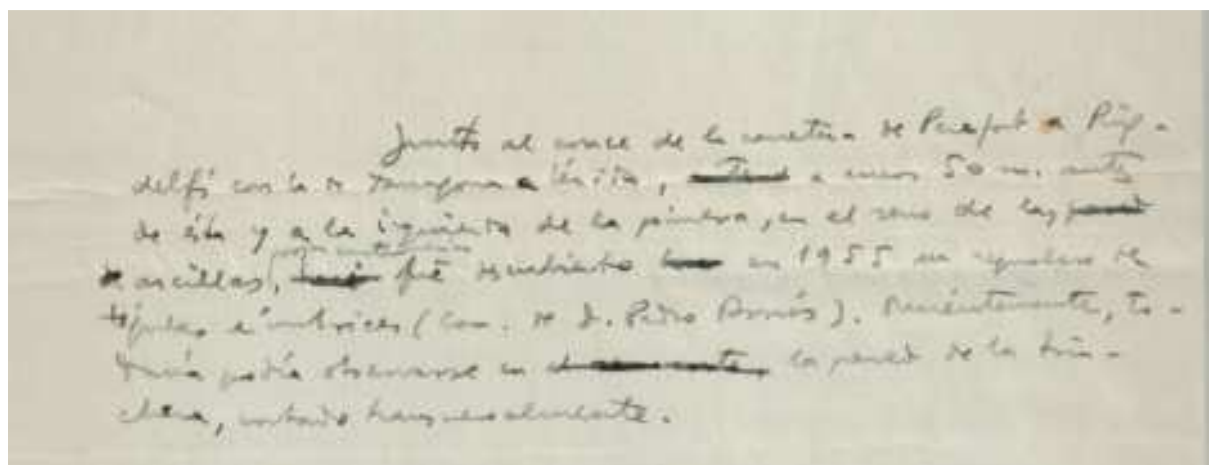 Junto al cruce de la carretera de Perafort a Puig-
delfí con la de Tarragona a Lérida, a unos 50 m. antes
de ésta y a la izquierda de la primera, en el seno de las
arcillas, fué descubierto en 1955 un sepulcro de
tégulas e ímbrices (com. de D. Pedro). Recientemente, to-
davía podía observarse en la pared de la trin-
chera, cortado transversalmente.